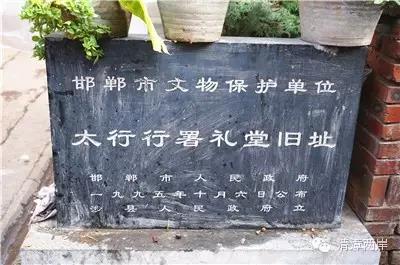 邯郸市文物保护单位
太行行署礼堂旧址
邯郸市人民政府
一九九五年十月六日公布
涉县人民政府立
清漳两岸